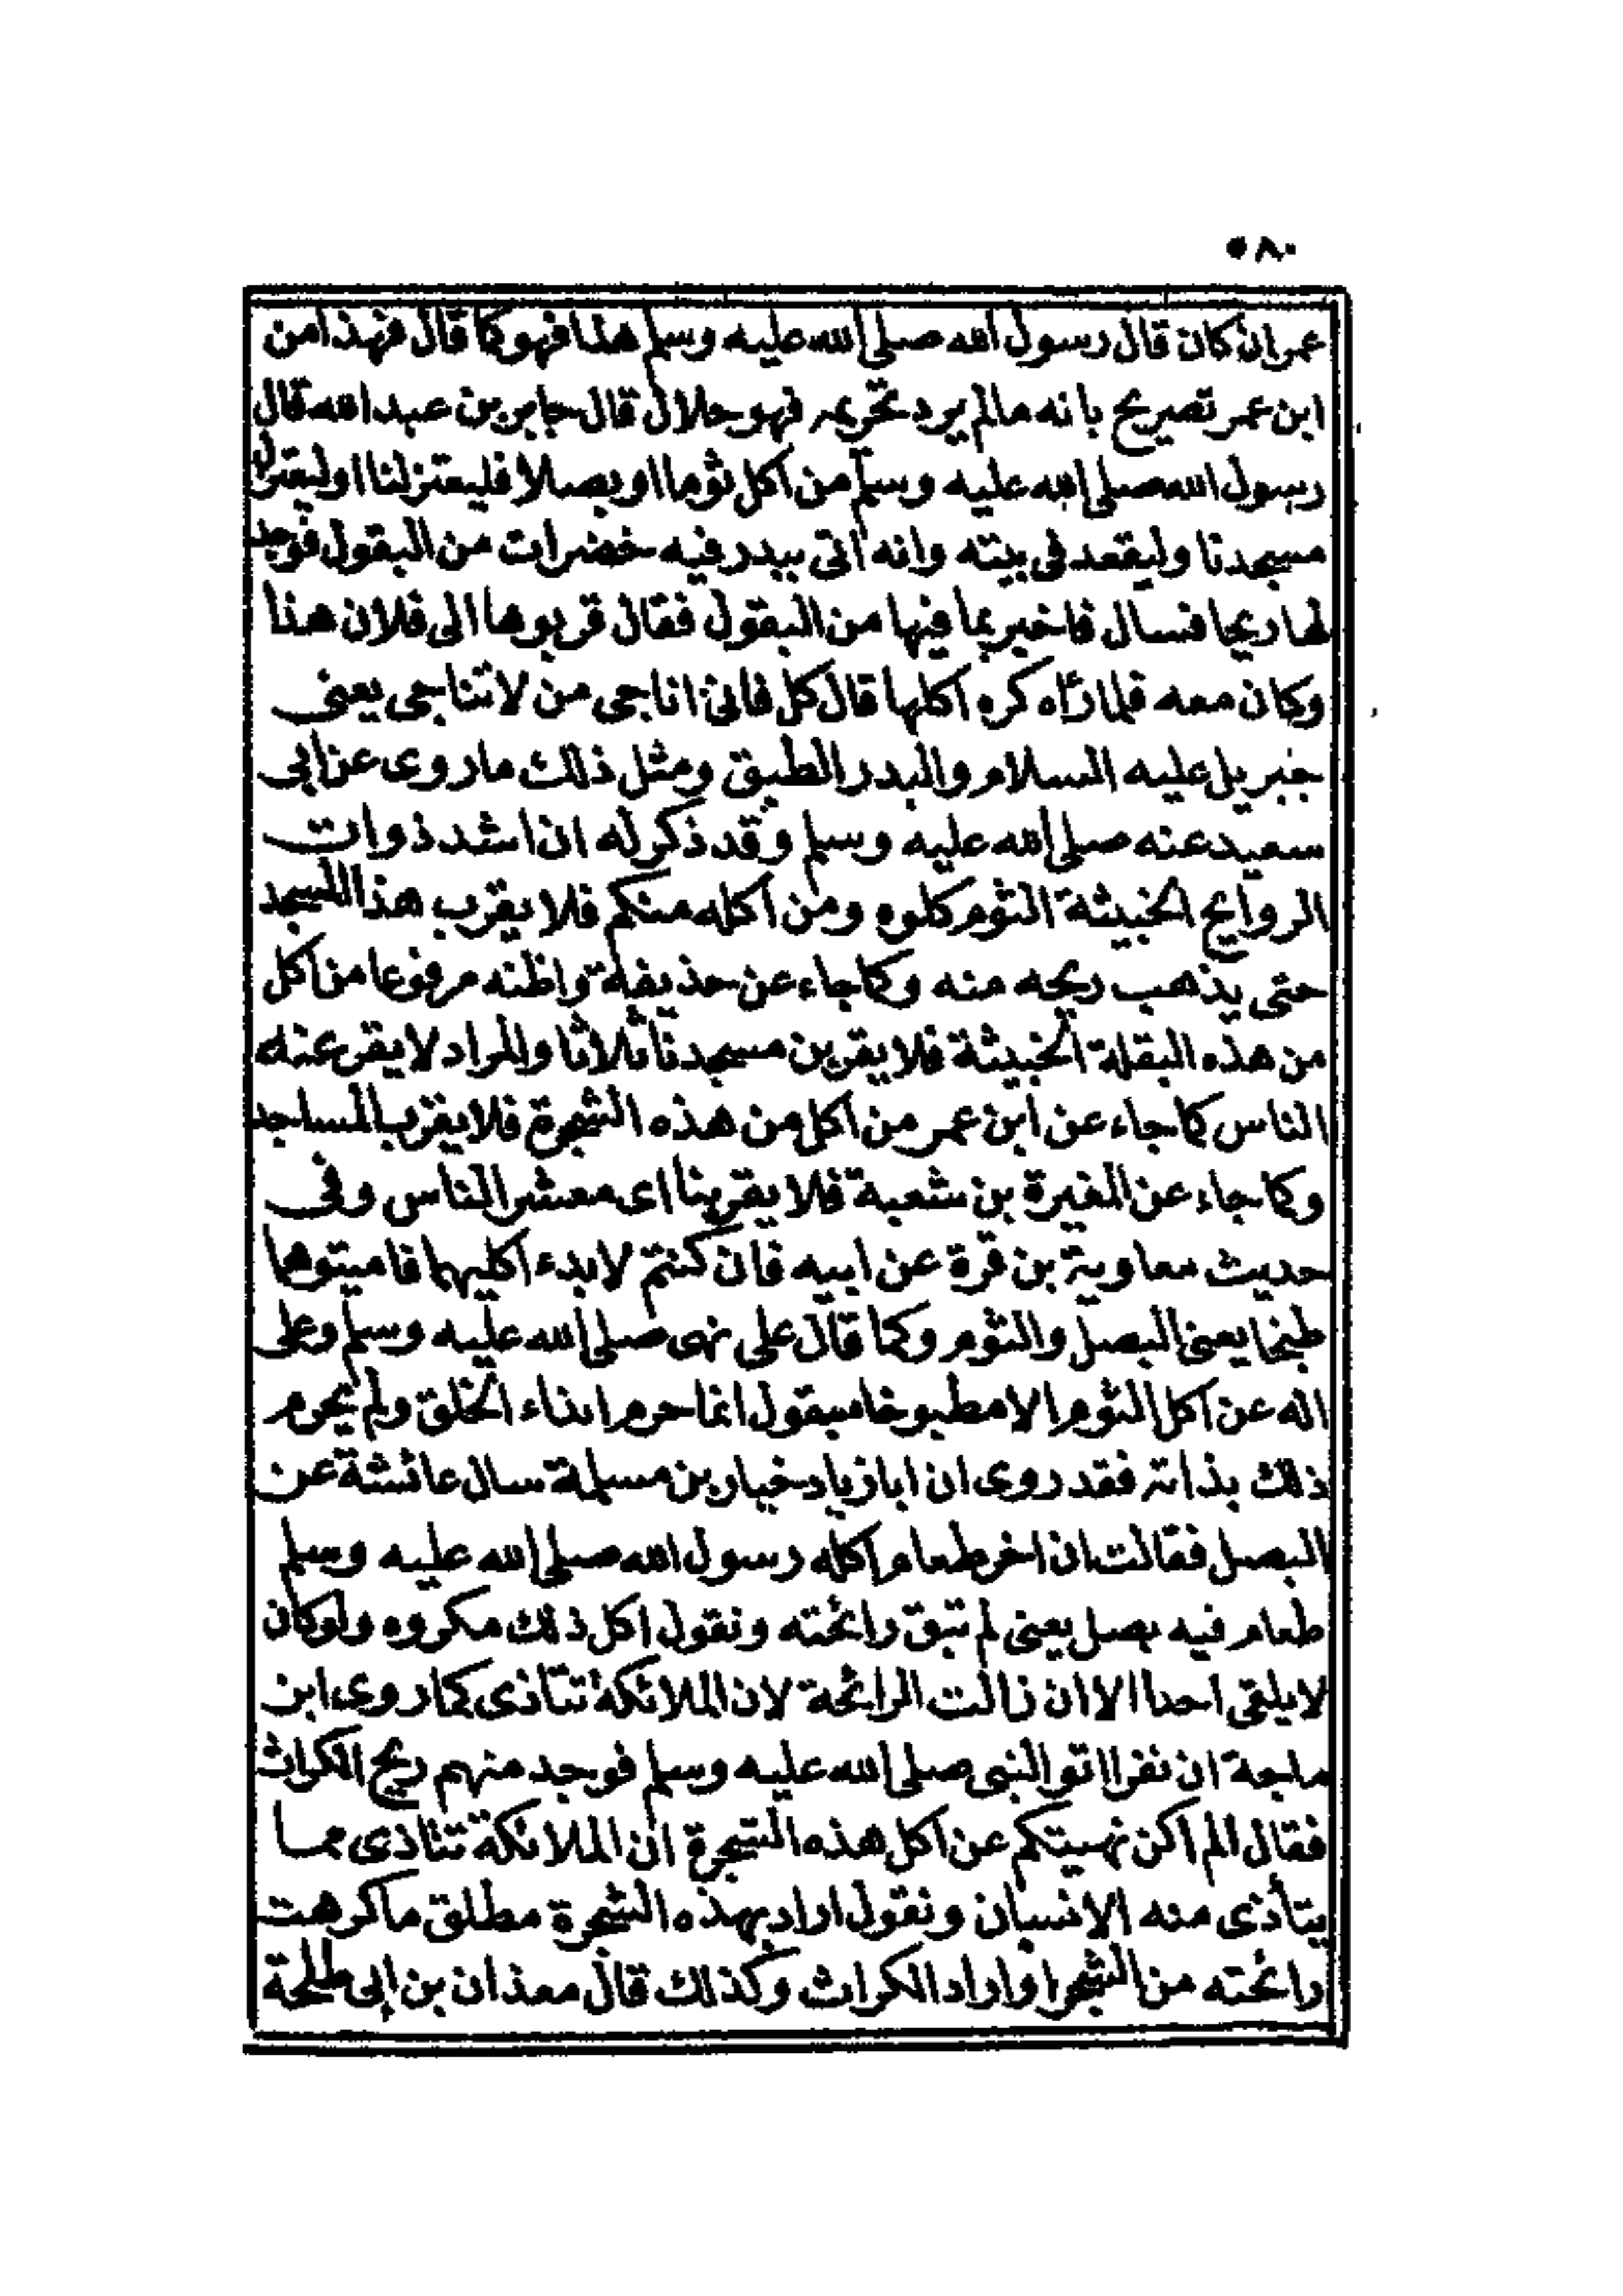 ٥٨٠
عمران كان قال رسول الله صلى الله عليه وسلم هذا فهو كما قال فهذا من
ابن عمر تصريح بانه مالم يرد تحريمه فهو حلال قال جابر بن عبد الله قال
رسول الله صلى الله عليه وسلم من اكل ثوما او بصلا فليعتزلنا او ليعتزل
مسجدنا وليقعد فى بيته وانه اتى ببدر فيه خضرات من البقول فوجد
لها ريحا فسال فاخبر بما فيها من البقول فقال قربوها الى فلان هذا
وكان معه فلما رآه كره اكلها قال كل فانى اناجى من لا تناجى يعنى
جبريل عليه السلام والبدر الطبق ومثل ذلك ما روى عن ابى
سعيد عنه صلى الله عليه وسلم وقد ذكر له ان اشد ذوات
الروايح الخبيثة الثوم كلوه ومن اكله منكم فلا يقرب هذا المسجد
حتى يذهب ريحه منه وكما جاء عن حذيفة واظنه مرفوعا من اكل
من هذه البقلة الخبيثة فلا يقربن مسجدنا ثلاثا والمراد لا يقر عنه
الناس كما جاء عن ابن عمر من اكل من هذه الشجرة فلا يقرب المساجد
وكما جاء عن المغيرة بن شعبة فلا يقربنا اى معشر الناس وفى
حديث معاوية بن قرة عن ابيه فان كنتم لا بدء اكليهما فاميتوها
طبخا يعنى البصل والثوم وكما قال على نهى صلى الله عليه وسلم وعلى
اله عن اكل الثوم الا مطبوخا سيقول انما حرم ايذاء الخلق ولم يحرم
ذلك بذاته فقد روى ان ابا زياد خيار بن مسلمة سال عائشة عن
البصل فقالت ان اخر طعام اكله رسول الله صلى الله عليه وسلم
طعام فيه بصل يعنى لم تبق رائحته ونقول اكل ذلك مكروه ولو كان
لا يلقى احدا الا ان زالت الرائحة لان الملائكة تتأذى كما روى ابن
ماجة ان نفرا اتو النبى صلى الله عليه وسلم فوجد منهم ريح الكراث
فقال الم اكن نهيتكم عن اكل هذه الشجرة ان الملائكة تتاذى مما
يتأذى منه الانسان ونقول اراد بهذه الشجرة مطلق ما كرهت
رائحته من الشجر او اراد الكراث وكذلك قال معذان بن ابى طلحة